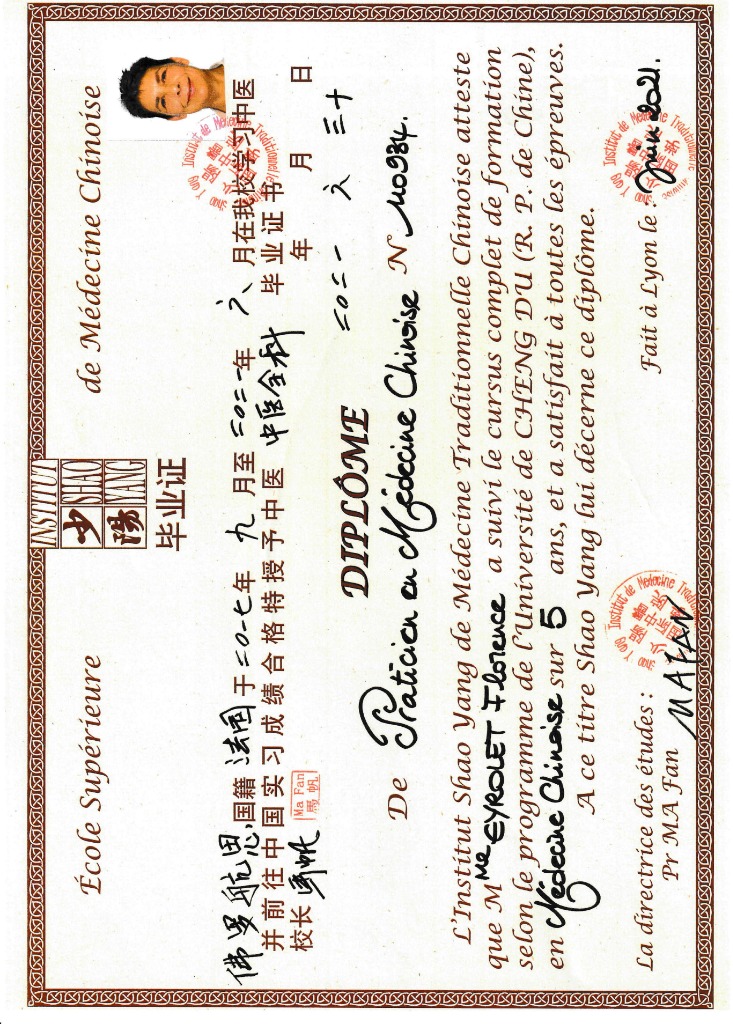 École Supérieure
INSTITUT
少 SHAO
陽 YANG
de Médecine Chinoise
毕业证
佛罗航思,国籍 法国 于 二〇一七年 九 月至 二〇二一年 六 月在我校学习中医
并前往中国实习成绩合格特授予中医 中医全科 毕业证书
校长 Ma Fan 馬帆 年 月 日
二〇二一 六 三十
DIPLÔME
De Praticien en Médecine Chinoise N 110984.
L'Institut Shao Yang de Médecine Traditionnelle Chinoise atteste
que Mme EYROLET Florence a suivi le cursus complet de formation
selon le programme de l'Université de CHENG DU (R. P. de Chine),
en Médecine Chinoise sur 5 ans, et a satisfait à toutes les épreuves.
A ce titre Shao Yang lui décerne ce diplôme.
La directrice des études :
Pr MA Fan MA FAN
Fait à Lyon le : Juin 2021.
Institut de Médecine Traditionnelle Chinoise Shao Yang